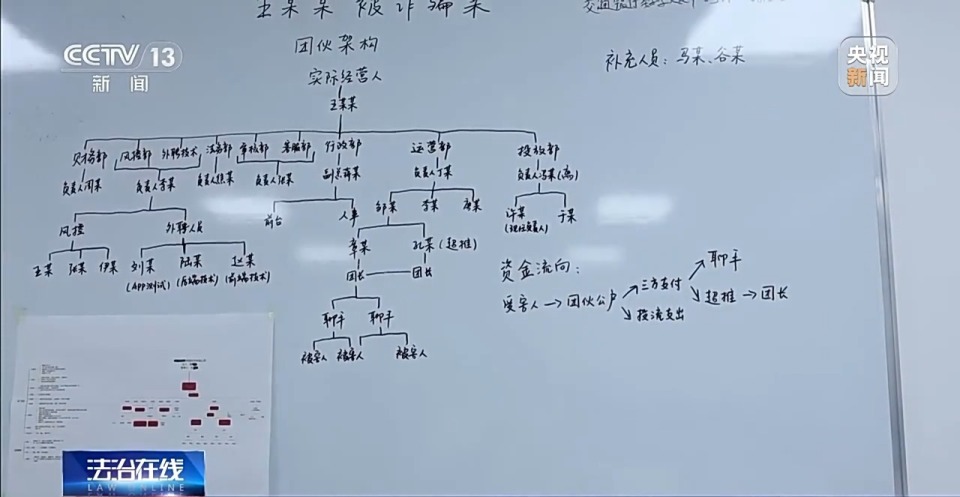 王某某被诈骗案
CCTV 13
新闻
央视
新闻
团伙架构
补充人员：马某、谷某
实际经营人
王某某
财務部 风控部 外聘技术 法务部 审核部 客服部 行政部 运营部 投放部
负责人周某 负责人李某 负责人熊某 负责人张某 负责人丁某 负责人冯某(离)
风控 外聘人员 前台 人事 邹某 李某 唐某 许某 于某
(现任负责人)
王某 汪某 伊某 刘某 陆某 赵某 章某 孔某(超推)
(APP测试) (后端技术) (前端技术)
团长 团长
聊手 聊手
被害人 被害人 被害人
资金流向：
受害人→团伙公户 三方支付 聊手
投流支出 超推→团长
法治在线
LAW ONLINE